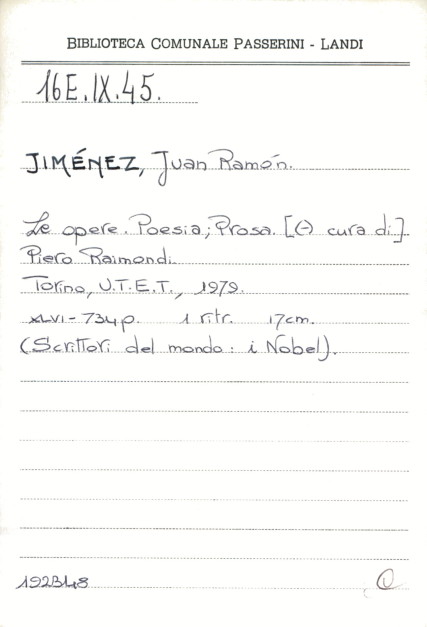 BIBLIOTECA COMUNALE PASSERINI - LANDI
16E.IX.45.
JIMÉNEZ, Juan Ramón.
Le opere. Poesia; Prosa. [(-) cura di]
Piero Raimondi.
Torino, U.T.E.T., 1979.
XLVI-734p. 1 ritr. 17cm.
(Scrittori del mondo: i Nobel).